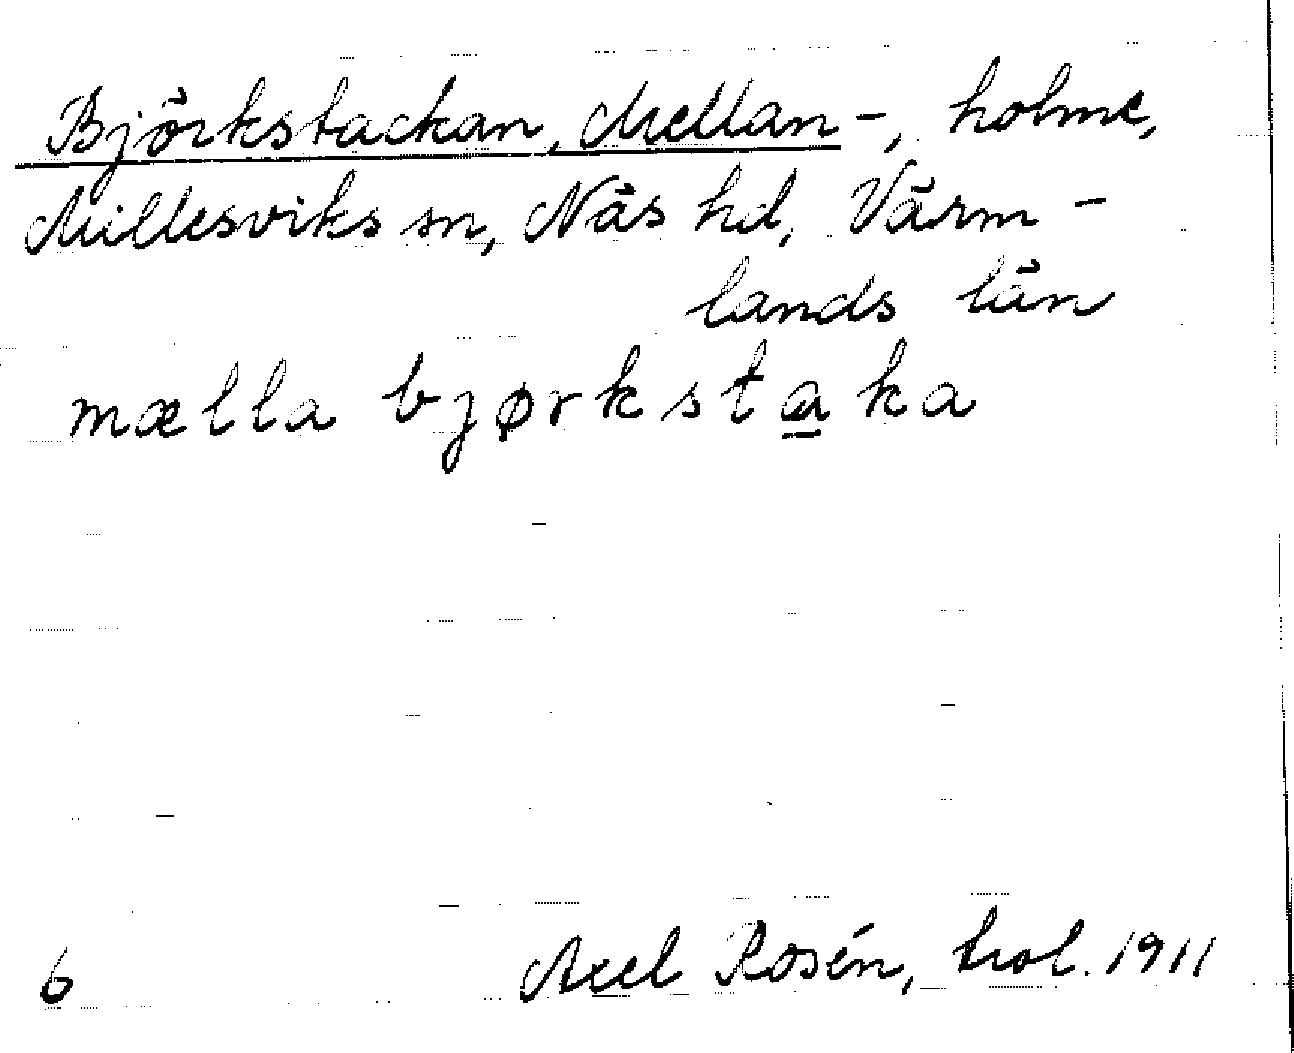 Björkstackan, Mellan-, holme,
Millesviks sn, Näs hd, Värm-
lands län
mælla bjørkstaka
6 Axel Rosén, trol. 1911